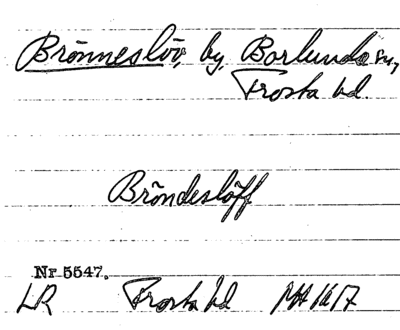 Brönneslöv, by, Borlunda sn,
Frosta hd.
Bröndeslöff
Nr 5547.
LR Frosta hd MH 1617